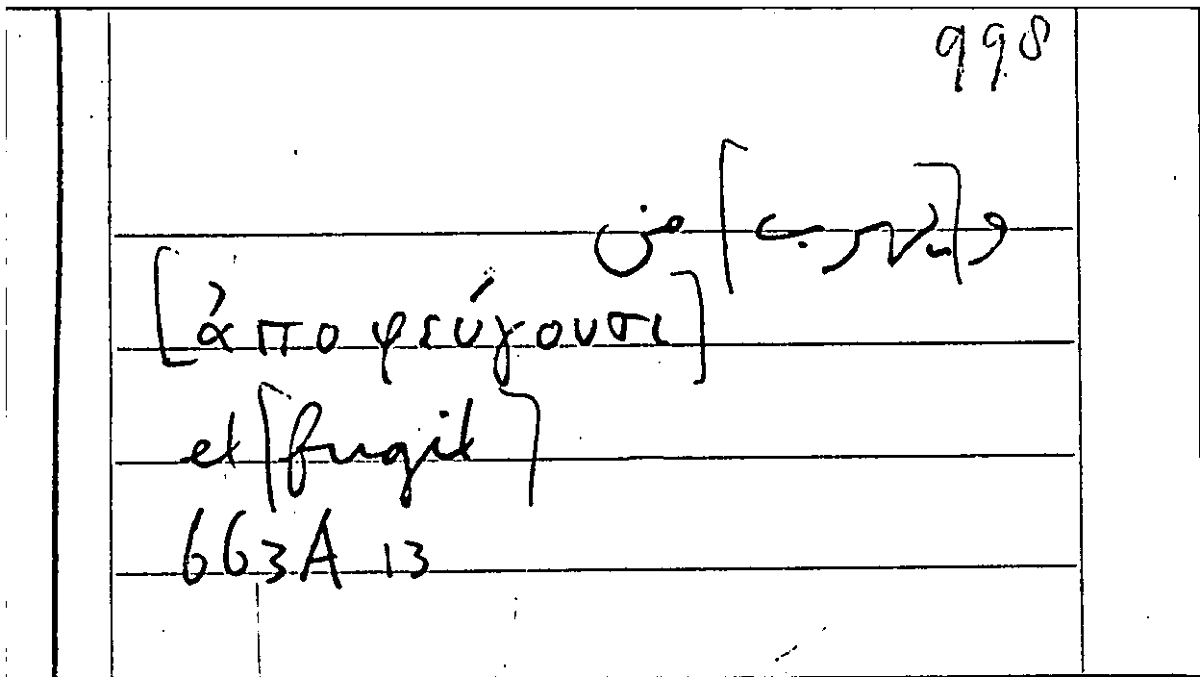 998
و[يهرب] من
[ἀποφεύγουσι]
et [fugit]
663A 13